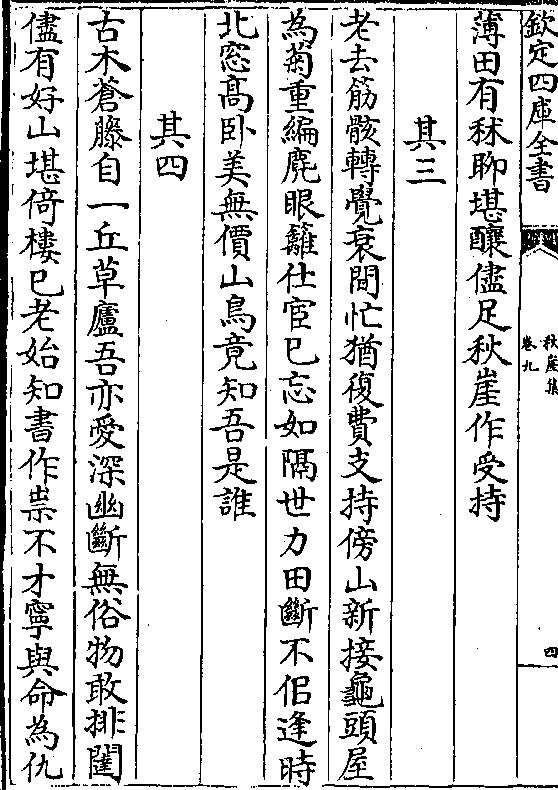 欽定四庫全書
秋崖集
卷九
四
薄田有秫聊堪釀儘足秋崖作受持
其三
老去筋骸轉覺衰間忙猶復費支持傍山新接龜頭屋
為菊重編麂眼籬仕宦已忘如隔世力田斷不侣逢時
北窓髙卧美無價山鳥竟知吾是誰
其四
古木蒼藤自一丘草廬吾亦愛深幽斷無俗物敢排闥
儘有好山堪倚樓已老始知書作祟不才寧與命為仇